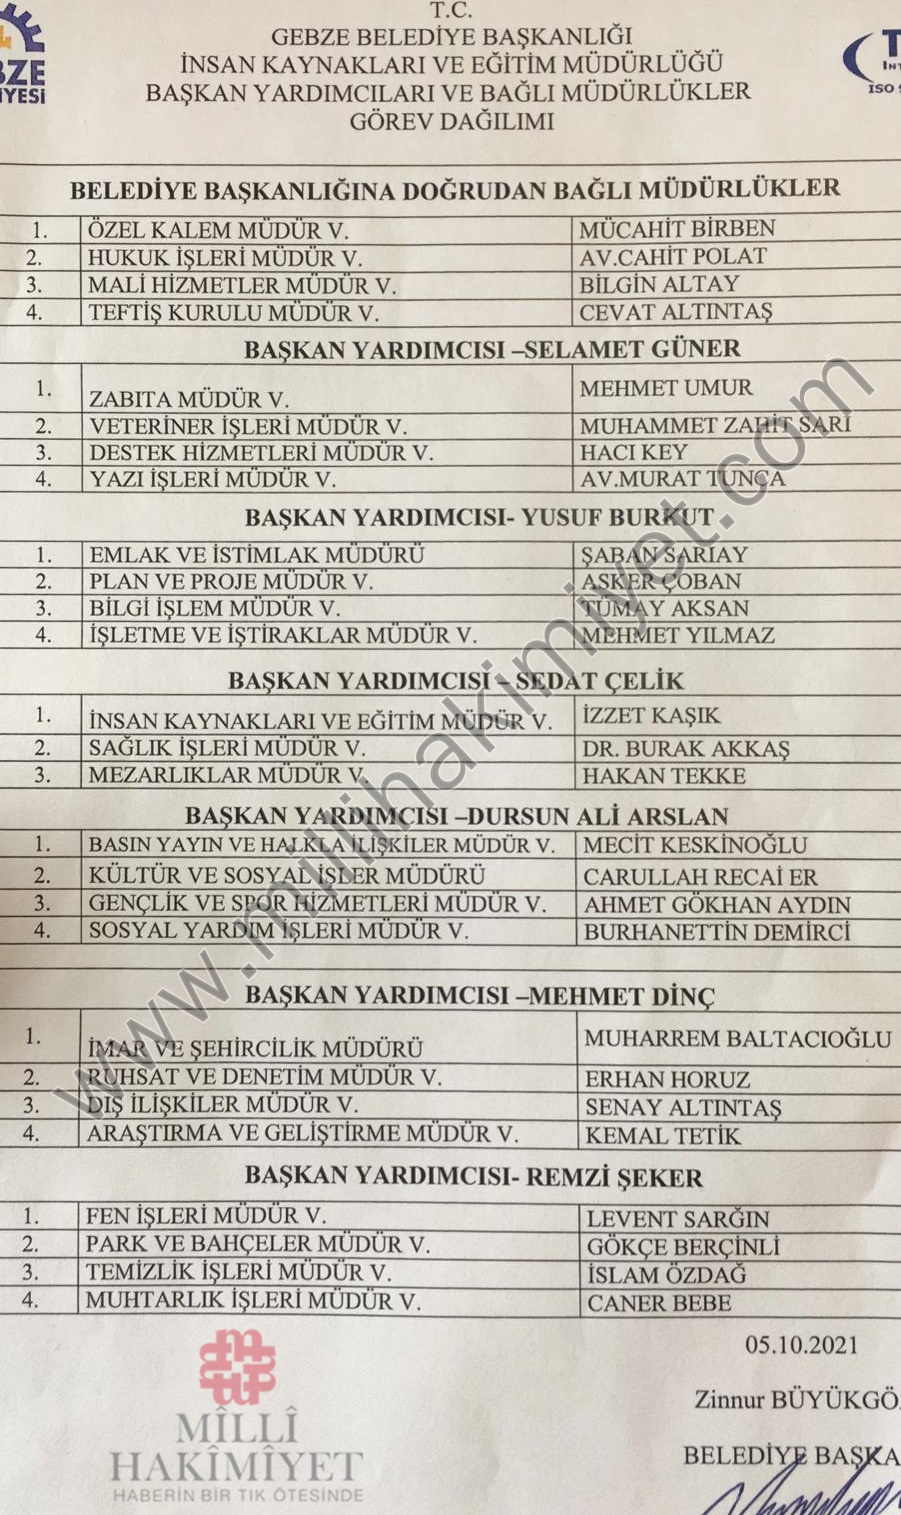 T.C.
GEBZE BELEDİYE BAŞKANLIĞI
İNSAN KAYNAKLARI VE EĞİTİM MÜDÜRLÜĞÜ
BAŞKAN YARDIMCILARI VE BAĞLI MÜDÜRLÜKLER
GÖREV DAĞILIMI
BZE
İYESİ
ISO 9
BELEDİYE BAŞKANLIĞINA DOĞRUDAN BAĞLI MÜDÜRLÜKLER
1. ÖZEL KALEM MÜDÜR V. MÜCAHİT BİRBEN
2. HUKUK İŞLERİ MÜDÜR V. AV.CAHİT POLAT
3. MALİ HİZMETLER MÜDÜR V. BİLGİN ALTAY
4. TEFTİŞ KURULU MÜDÜR V. CEVAT ALTINTAŞ
BAŞKAN YARDIMCISI –SELAMET GÜNER
1. ZABITA MÜDÜR V. MEHMET UMUR
2. VETERİNER İŞLERİ MÜDÜR V. MUHAMMET ZAHİT SARİ
3. DESTEK HİZMETLERİ MÜDÜR V. HACI KEY
4. YAZI İŞLERİ MÜDÜR V. AV.MURAT TUNCA
BAŞKAN YARDIMCISI- YUSUF BURKUT
1. EMLAK VE İSTİMLAK MÜDÜRÜ ŞABAN SARIAY
2. PLAN VE PROJE MÜDÜR V. ASKER ÇOBAN
3. BİLGİ İŞLEM MÜDÜR V. TÜMAY AKSAN
4. İŞLETME VE İŞTİRAKLAR MÜDÜR V. MEHMET YILMAZ
BAŞKAN YARDIMCISI – SEDAT ÇELİK
1. İNSAN KAYNAKLARI VE EĞİTİM MÜDÜR V. İZZET KAŞIK
2. SAĞLIK İŞLERİ MÜDÜR V. DR. BURAK AKKAŞ
3. MEZARLIKLAR MÜDÜR V. HAKAN TEKKE
BAŞKAN YARDIMCISI –DURSUN ALİ ARSLAN
1. BASIN YAYIN VE HALKLA İLİŞKİLER MÜDÜR V. MECİT KESKİNOĞLU
2. KÜLTÜR VE SOSYAL İŞLER MÜDÜRÜ CARULLAH RECAİ ER
3. GENÇLİK VE SPOR HİZMETLERİ MÜDÜR V. AHMET GÖKHAN AYDIN
4. SOSYAL YARDIM İŞLERİ MÜDÜR V. BURHANETTİN DEMİRCİ
BAŞKAN YARDIMCISI –MEHMET DİNÇ
1. İMAR VE ŞEHİRCİLİK MÜDÜRÜ MUHARREM BALTACIOĞLU
2. RUHSAT VE DENETİM MÜDÜR V. ERHAN HORUZ
3. DIŞ İLİŞKİLER MÜDÜR V. SENAY ALTINTAŞ
4. ARAŞTIRMA VE GELİŞTİRME MÜDÜR V. KEMAL TETİK
BAŞKAN YARDIMCISI- REMZİ ŞEKER
1. FEN İŞLERİ MÜDÜR V. LEVENT SARĞIN
2. PARK VE BAHÇELER MÜDÜR V. GÖKÇE BERÇİNLİ
3. TEMİZLİK İŞLERİ MÜDÜR V. İSLAM ÖZDAĞ
4. MUHTARLIK İŞLERİ MÜDÜR V. CANER BEBE
05.10.2021
Zinnur BÜYÜKGÖ
BELEDİYE BAŞKA
www.millihakimiyet.com
MÎLLÎ
HAKÎMÎYET
HABERİN BİR TIK ÖTESİNDE